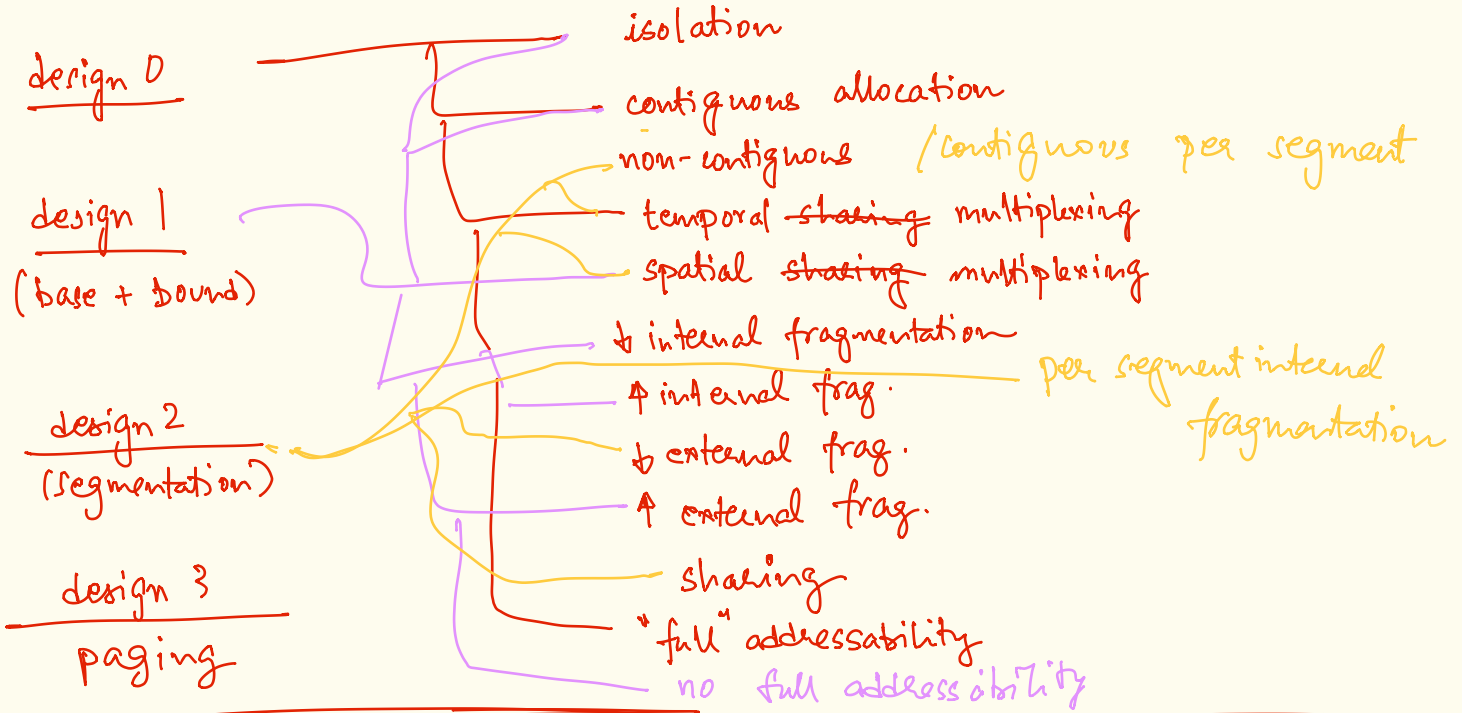 design 0
design 1
(base + bound)
design 2
(segmentation)
design 3
paging
isolation
contiguous allocation
non-contiguous / contiguous per segment
temporal sharing multiplexing
spatial sharing multiplexing
↓ internal fragmentation
per segment internal
fragmentation
↑ internal frag.
↓ external frag.
↑ external frag.
sharing
"full" addressability
no full addressability